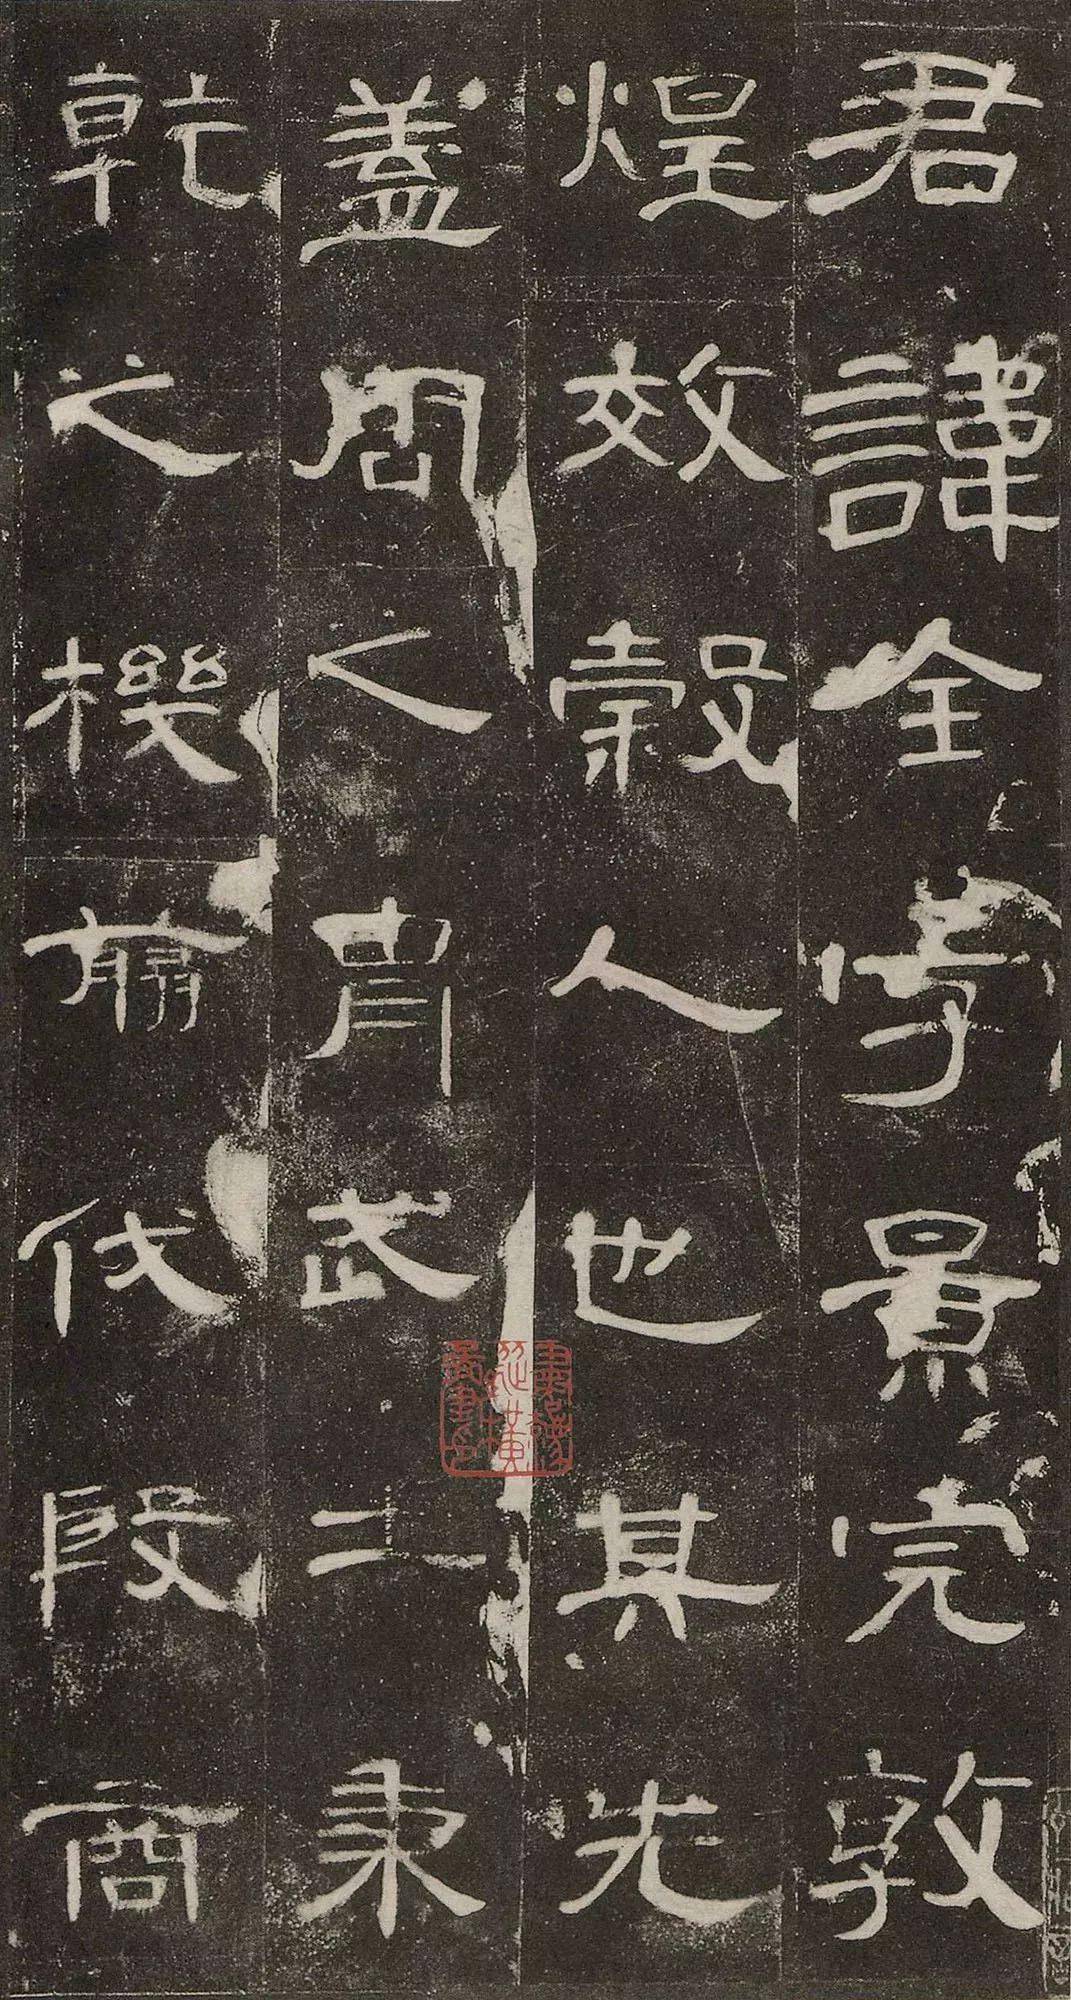 君諱全字景完敦
煌效穀人也其先
蓋周之胄武王秉
乾之機翦伐殷商